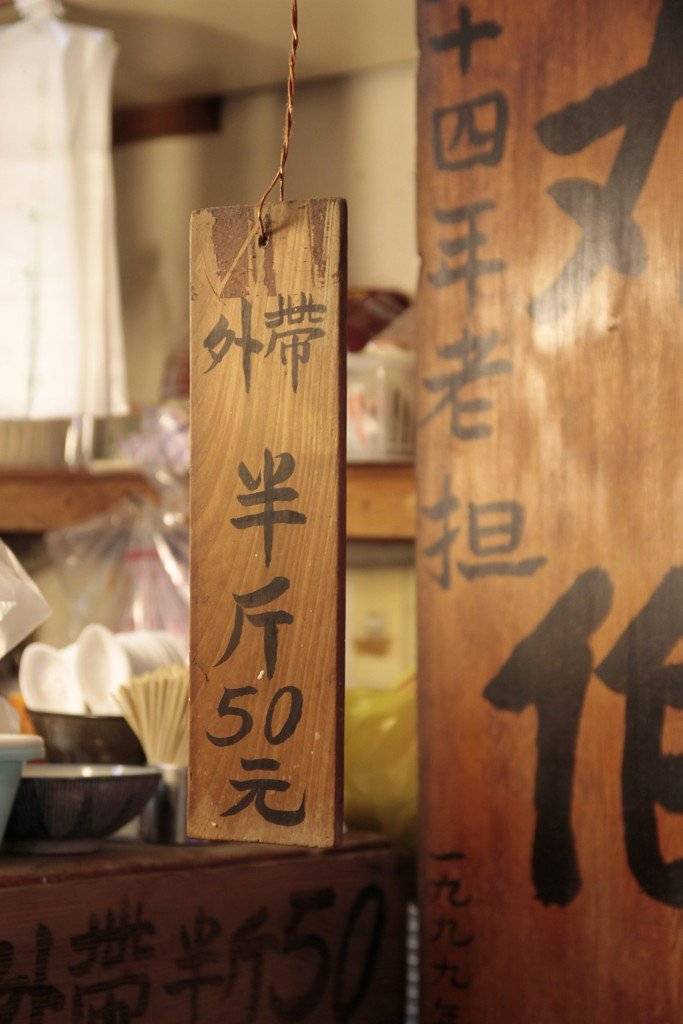 外帶
半斤
50
元
十四年老担
伯
一九九九年
外帶半斤50